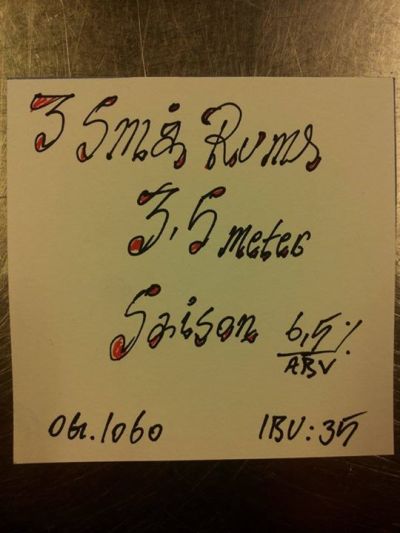 3 Små Rums
3,5 meter
Saison 6,5%
ABV
OG.1060 IBU:35